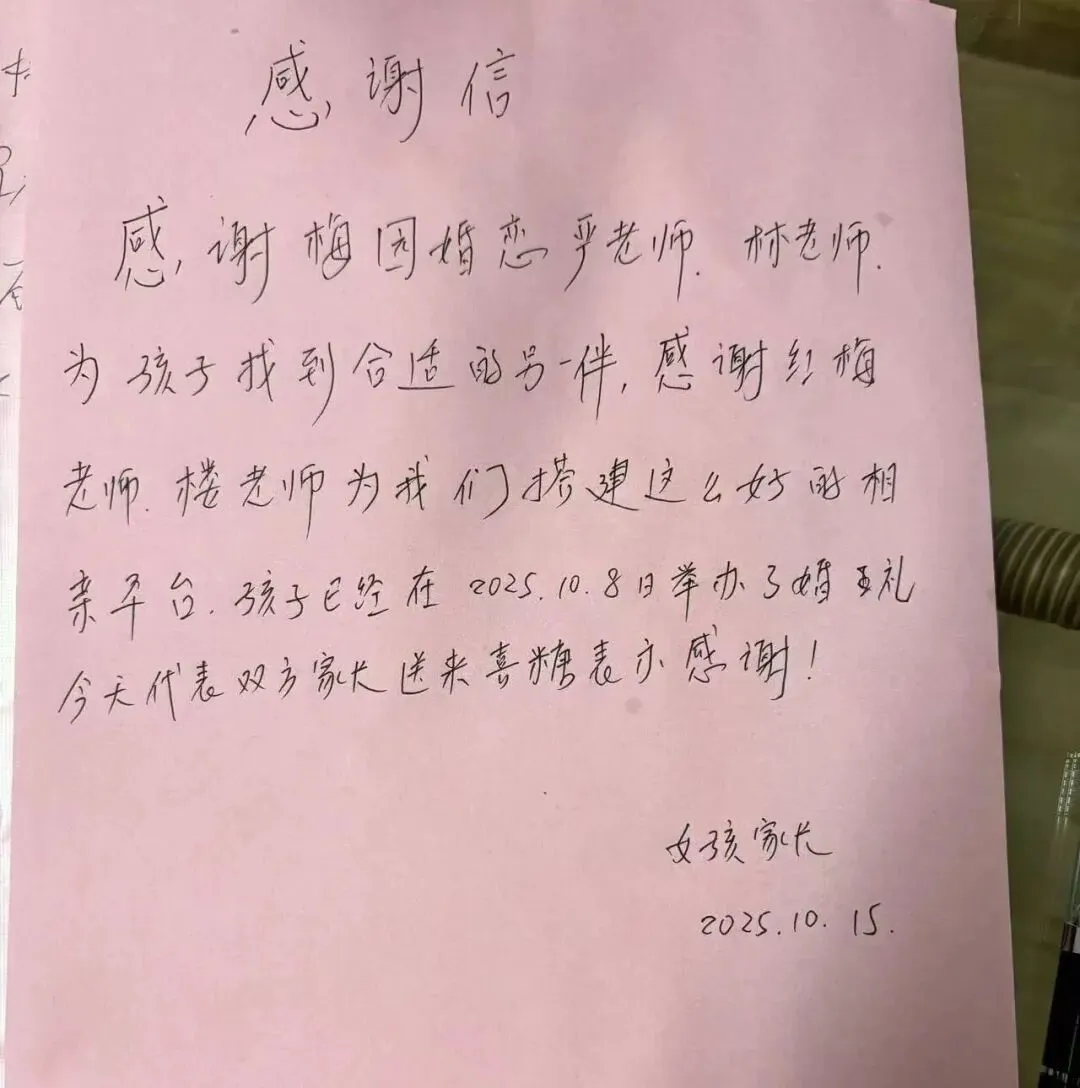 感谢信
感谢梅园婚恋严老师.林老师.
为孩子找到合适的另一伴,感谢红梅
老师.楼老师为我们搭建这么好的相
亲平台.孩子已经在2025.10.8日举办了婚礼
今天代表双方家长送来喜糖表示感谢!
女孩家长
2025.10.15.